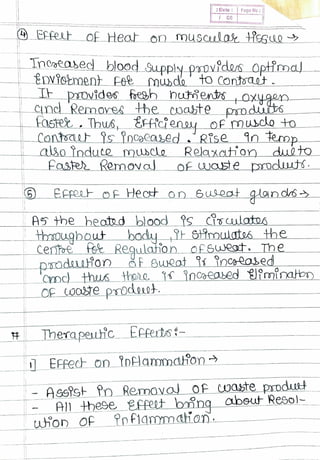 Date: Page No:
④ Effect of Heat on muscular tissue →
Increased blood supply provides optimal
Enviorbment For muscle to contract.
It provides fresh nutrients, oxygen
and Removes the waste products
Faster. Thus, Efficieney of muscle to
Contract is increased. Rise in temp
also induce muscle Relaxation due to
Faster Removal of waste products.
⑤ Effect of Heat on Sweat glands →
As the heated blood is circulates
throughout body, it stimulates the
centre for Regulation of sweat. The
production of sweat is increased
and thus there is increased Elimination
of waste product.
# Therapeutic Effects :-
1] Effect on inflammation →
- Assist in Removal of waste product
- All these effect bring about Resol-
ution of inflammation.